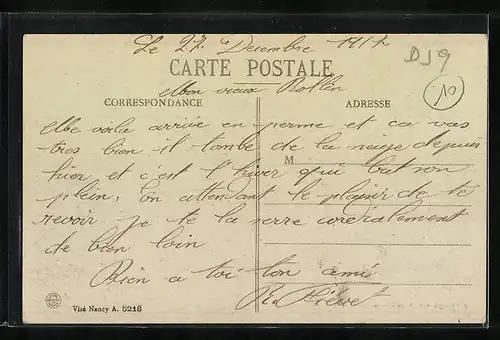 Le 27 Decembre 1917
DJ9
CARTE POSTALE
10
Mon vieux
CORRESPONDANCE
ADRESSE
Me voila arrivé en perme et ca vas
tres bien il tombe de la neige depuis
M
hier et c'est l'hiver qui bat son
plein. En attendant le plaisir de te
revoir je te la serre cordialement
de bien loin
Bien a toi ton ami
Visé Nancy A. 5216